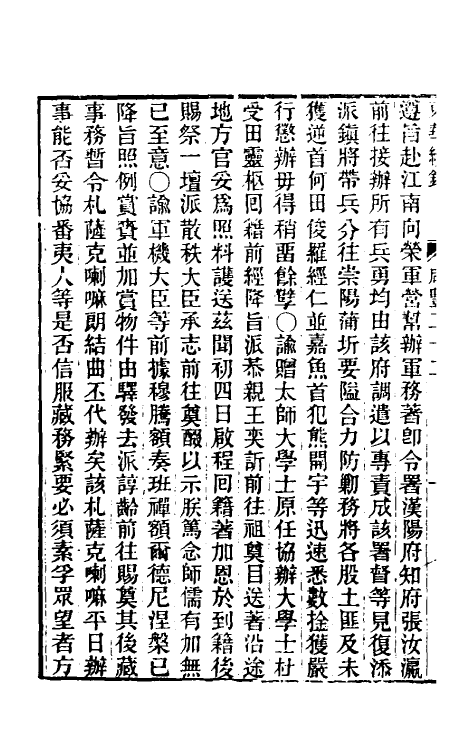 遵旨赴江南向榮軍營幫辦軍務著卽令署漢陽府知府張汝瀛
前往接辦所有兵勇均由該府調遣以專責成該署督等見復添
派鎭將帶兵分往崇陽蒲圻要隘合力防勦務將各股土匪及未
獲逆首何田俊羅經仁並嘉魚首犯熊開宇等迅速悉數搶獲嚴
行懲辦毋得稍畱餘孽〇諭贈太師大學士原任協辦大學士杜
受田靈柩回籍前經降旨派恭親王奕訢前往祖奠目送著沿途
地方官妥爲照料護送茲聞初四日啟程回籍著加恩於到籍後
賜祭一壇派散秩大臣承志前往奠醊以示朕篤念師儒有加無
已至意〇諭軍機大臣等前據穆騰額奏班禪額爾德尼涅槃已
降旨照例賞賚並加賞物件由驛發去派諄齡前往賜奠其後藏
事務暫令札薩克喇嘛朗結曲丕代辦矣該札薩克喇嘛平日辦
事能否妥協番夷人等是否信服藏務緊要必須素孚眾望者方